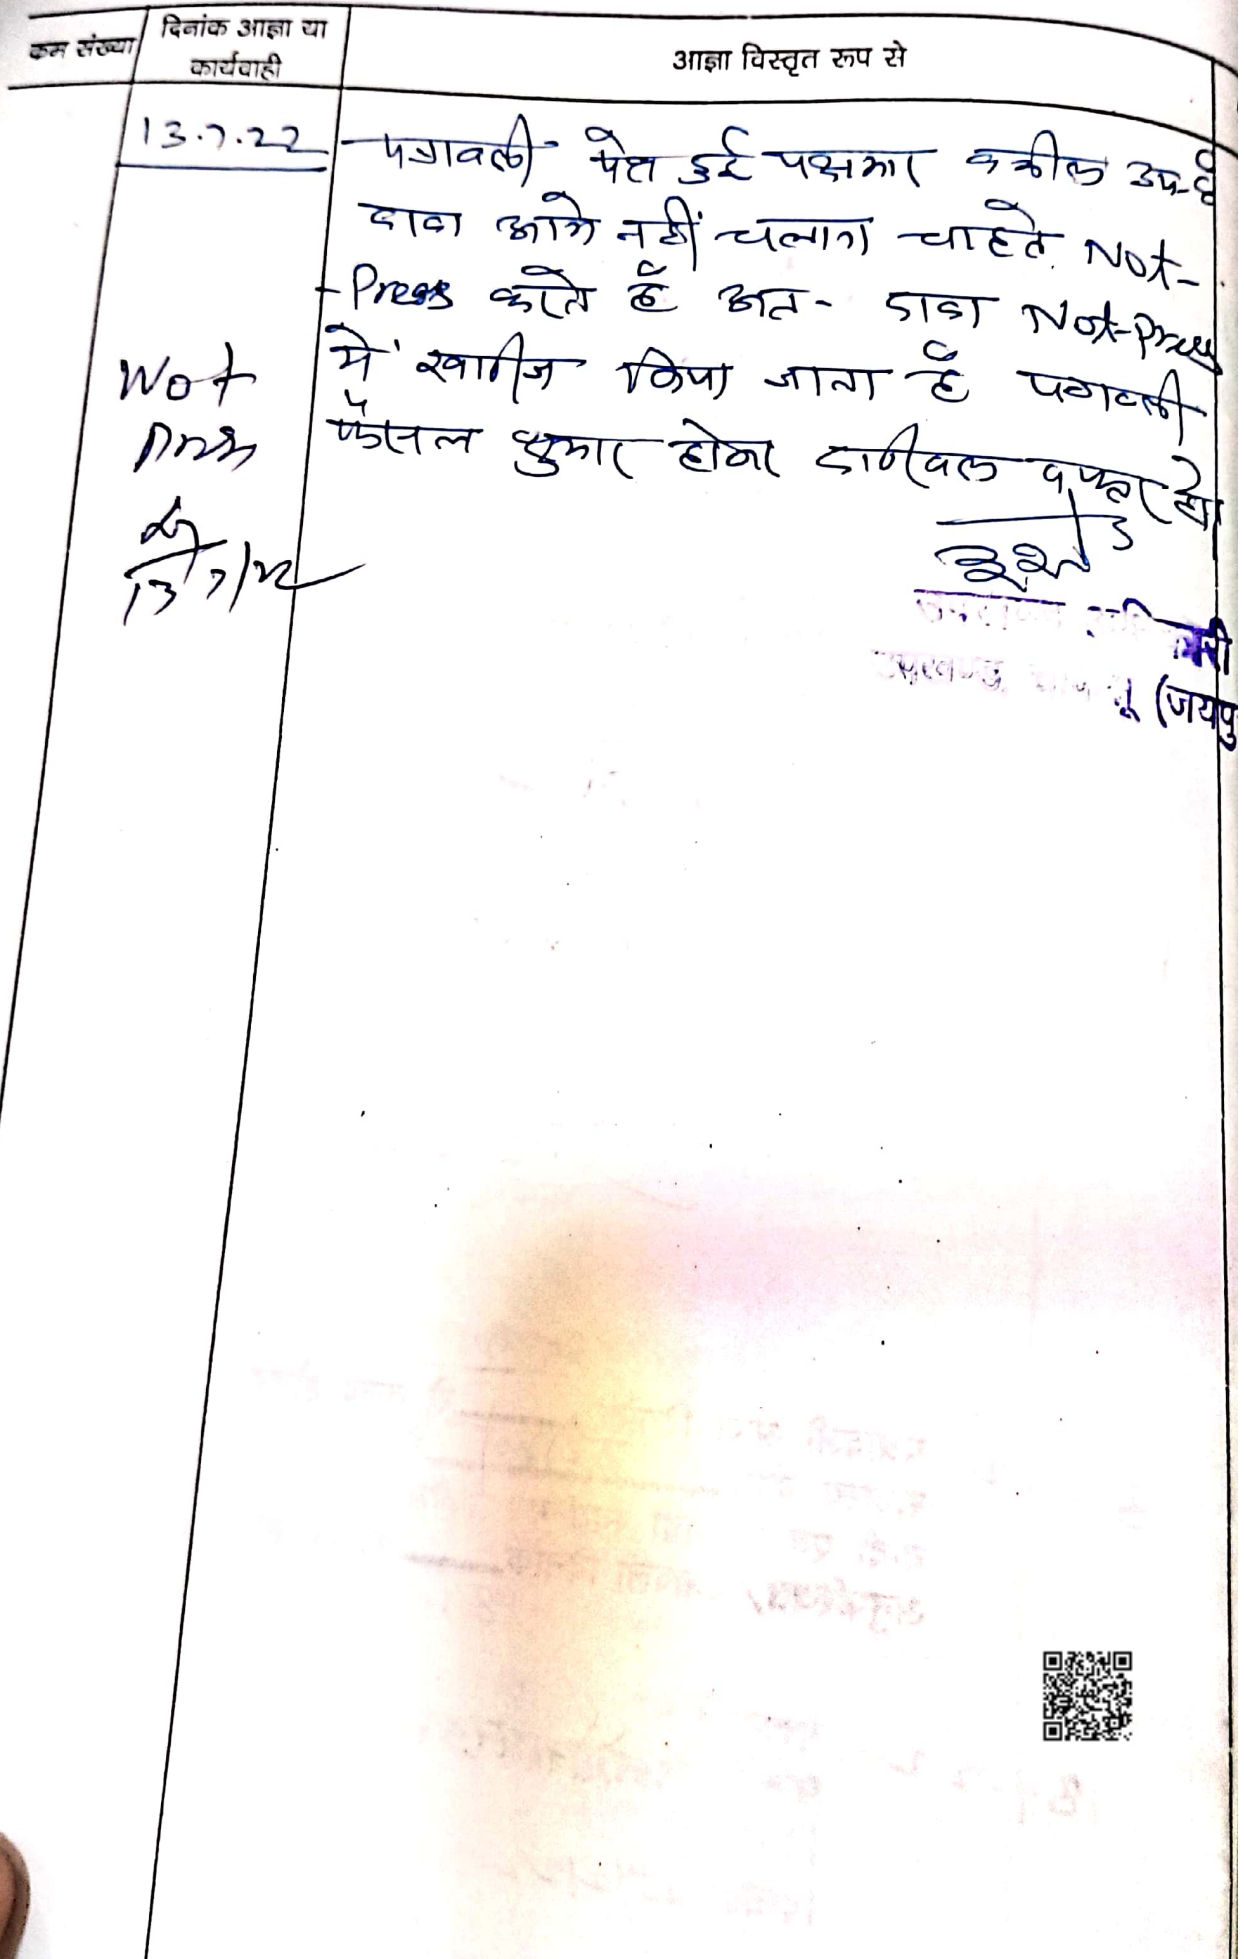 कम संख्या
दिनांक आज्ञा या
कार्यवाही
आज्ञा विस्तृत रूप से
13.7.22
पत्रावली पेश हुई पक्षकार वकील उप. है
दावा आगे नहीं चलाना चाहते Not-
Press करते हैं अत- दावा Not-Press
में खारीज किया जाता है पत्रावली
फैसल शुमार होकर दाखील दफ्तर हो
Not
Press
13/7/22
(जयपु